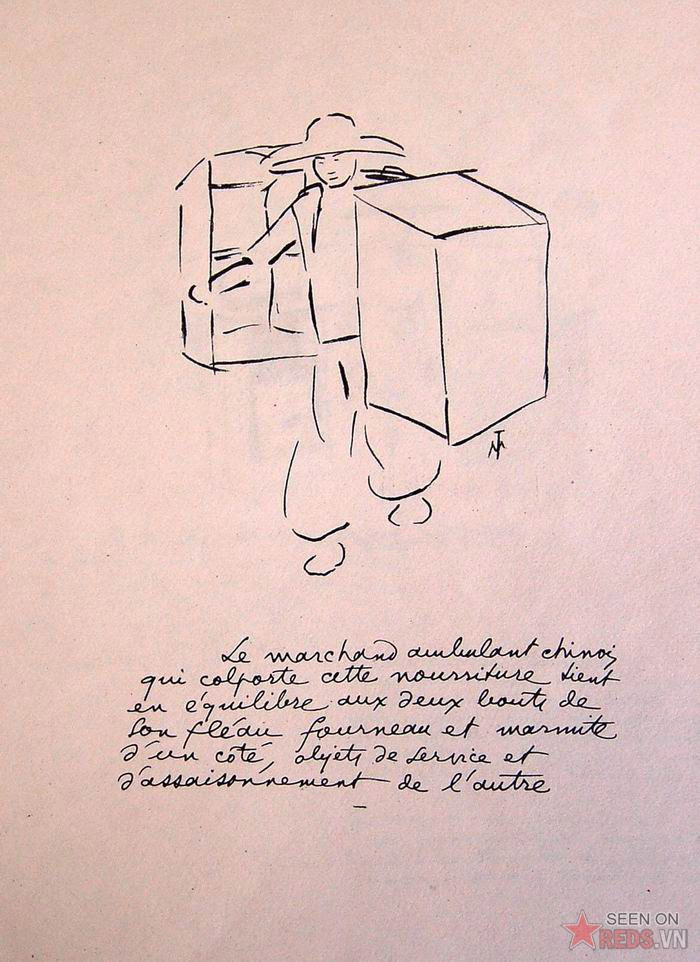 Le marchand ambulant chinois
qui colporte cette nourriture tient
en équilibre aux deux bouts de
son fléau fourneau et marmite
d'un côté, objets de service et
d'assaisonnement de l'autre
SEEN ON
REDS.VN